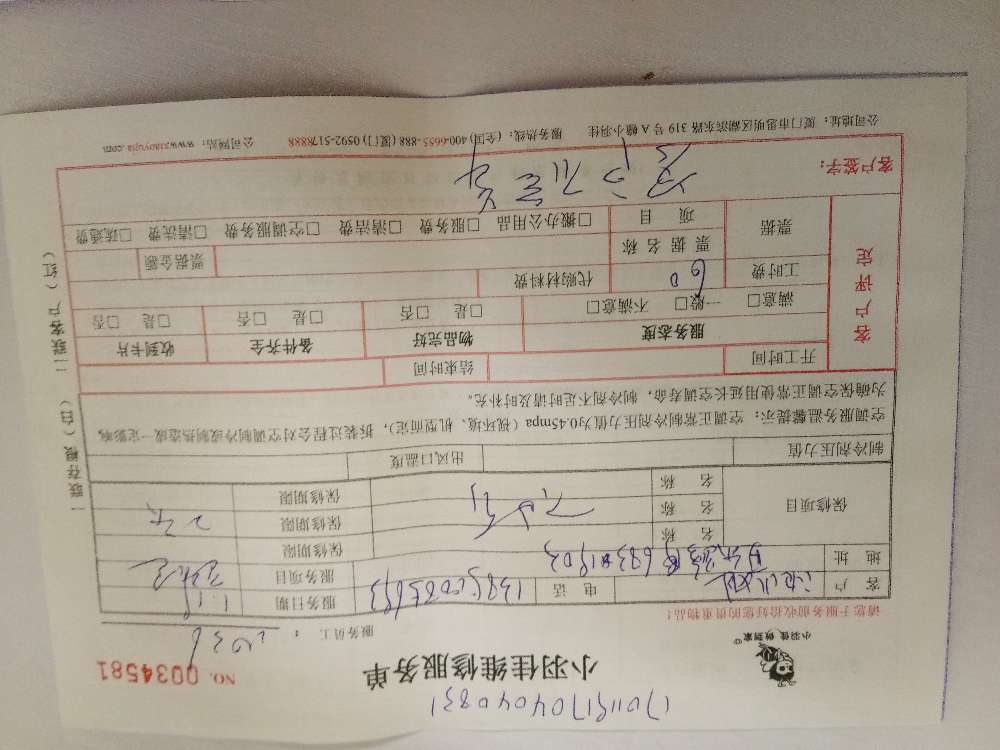 小羽佳维修服务单
NO. 0034581
小羽佳 做到家
服务员工：
请您于服务前收拾好您的贵重物品！
客户 电话 服务日期
地址 服务项目
保修项目 名称 保修期限
名称 保修期限
名称 保修期限
制冷剂压力值 出风口温度
空调服务温馨提示：空调正常制冷剂压力值为0.45mpa（视环境、机型而定），拆装过程会对空调制冷或制热造成一定影响，
为确保空调正常使用延长空调寿命，制冷剂不足时请及时补充。
客户评定
开工时间 结束时间
服务态度 物品完好 备件齐全 收到卡片
满意□ 一般□ 不满意□ □是 □否 □是 □否 □是 □否
工时费 60 代购材料费
票据 票据名称 票据金额
项目 □搬办公用品 □服务费 □清洁费 □空调服务费 □清洗费 □疏通费
客户签字：
公司地址：厦门市思明区湖滨东路 319 号 A 幢小羽佳 服务热线：(全国) 400-6655-888 (厦门) 0592-5178888 公司网站：www.xiaoyujia.com
一联存根（白） 二联客户（红）